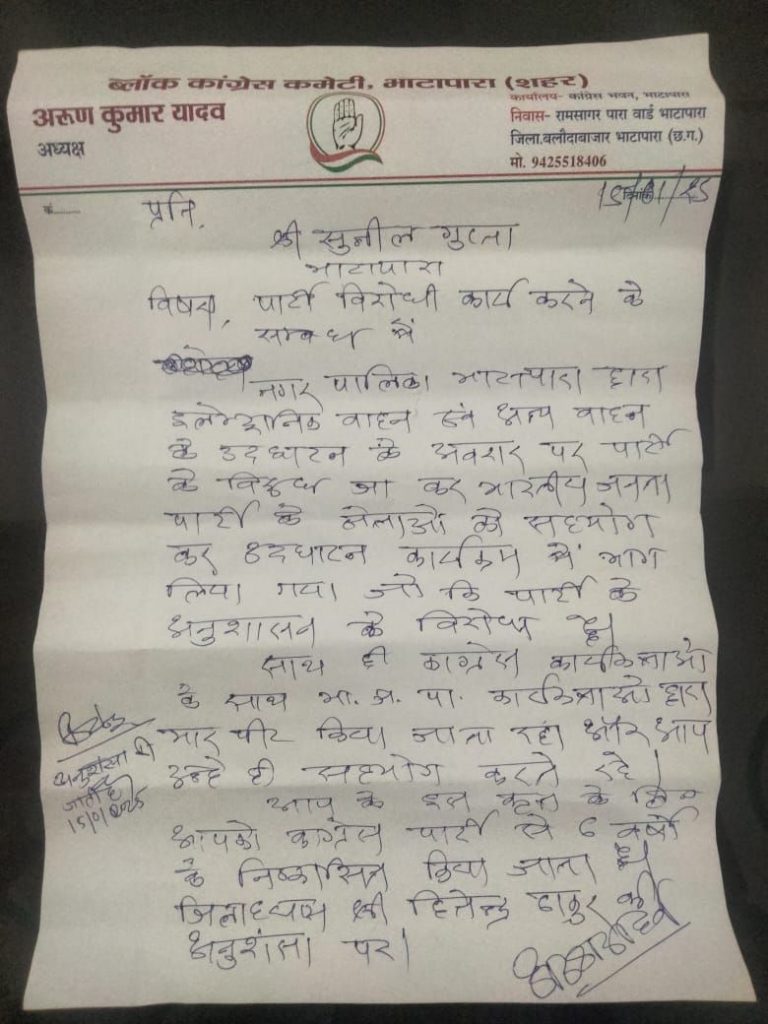 ब्लॉक कांग्रेस कमेटी, भाटापारा (शहर)
अरुण कुमार यादव
अध्यक्ष
कार्यालय- कांग्रेस भवन, भाटापारा
निवास- रामसागर पारा वार्ड भाटापारा
जिला.बलौदाबाजार भाटापारा (छ.ग.)
मो. 9425518406
क्र.........
15/01/25
प्रति,
श्री सुनील गुप्ता
भाटापारा
विषय, पार्टी विरोधी कार्य करने के
सम्बन्ध में
नगर पालिका भाटापारा द्वारा
इलेक्ट्रानिक वाहन एवं अन्य वाहन
के उदघाटन के अवसर पर पार्टी
के विरूध्द जा कर भारतीय जनता
पार्टी के नेताओ को सहयोग
कर उदघाटन कार्यक्रम में भाग
लिया गया जो कि पार्टी के
अनुशासन के विरोध है।
साथ ही कांग्रेस कार्यकर्ताओ
के साथ भा.ज.पा. कार्यकर्ताओ द्वारा
मार पीट किया जाता रहा और आप
उन्हे ही सहयोग करते रहे।
आप के इस कृत्य के लिए
आपको कांग्रेस पार्टी से 6 वर्षो
के निष्कासित किया जाता है।
जिलाध्यक्ष श्री हितेन्द्र ठाकुर की
अनुशंसा पर।
अनुशंसा की
जाती है
15/01/2025